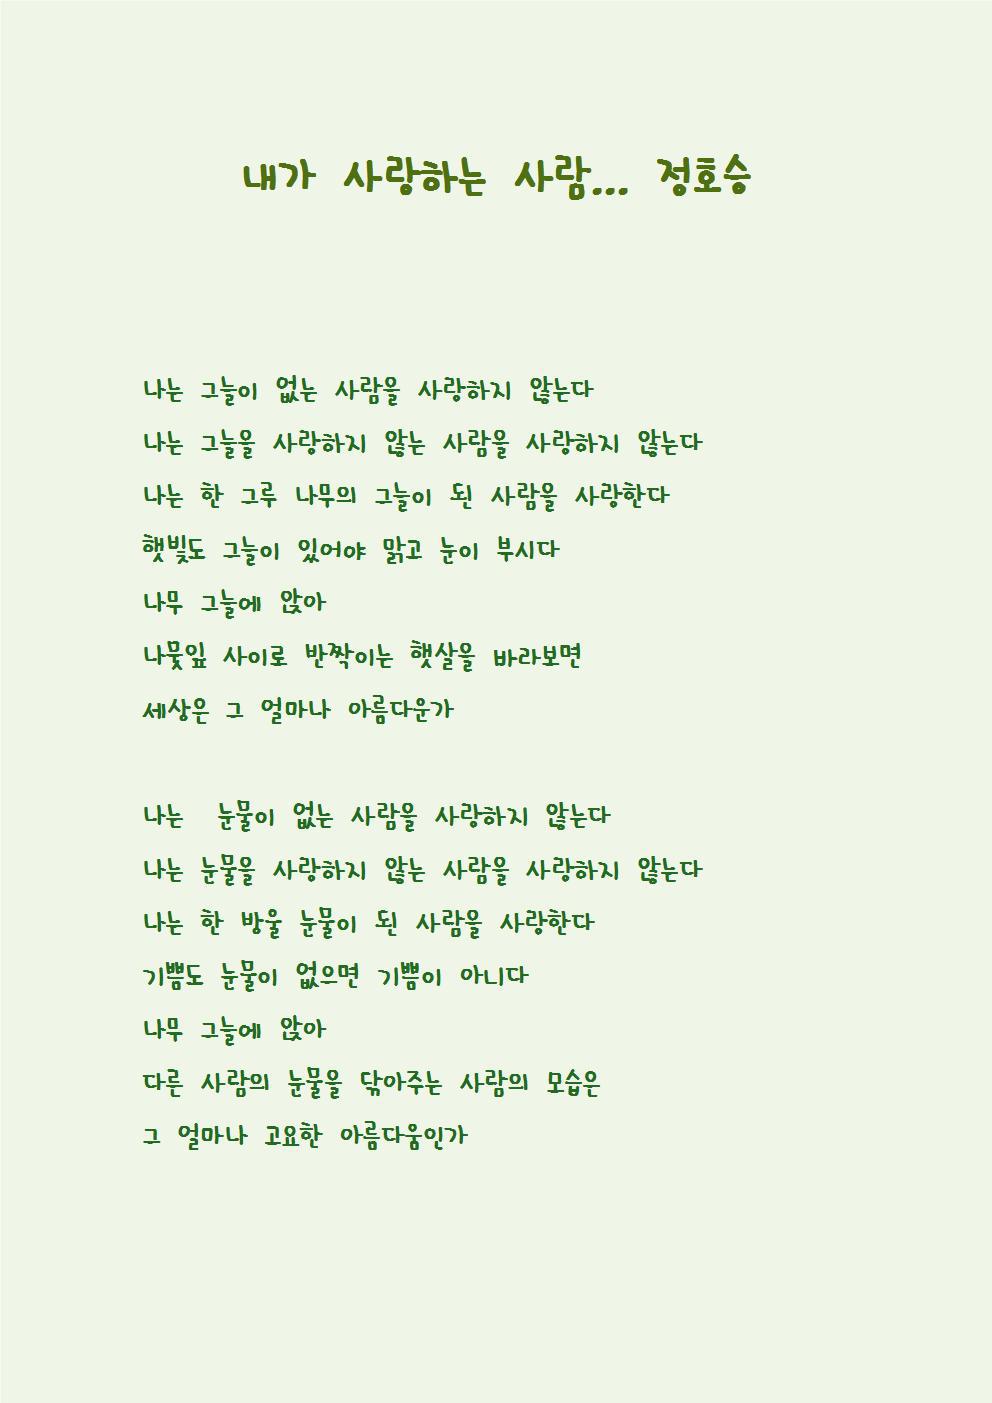 내가 사랑하는 사람... 정호승
나는 그늘이 없는 사람을 사랑하지 않는다
나는 그늘을 사랑하지 않는 사람을 사랑하지 않는다
나는 한 그루 나무의 그늘이 된 사람을 사랑한다
햇빛도 그늘이 있어야 맑고 눈이 부시다
나무 그늘에 앉아
나뭇잎 사이로 반짝이는 햇살을 바라보면
세상은 그 얼마나 아름다운가
나는 눈물이 없는 사람을 사랑하지 않는다
나는 눈물을 사랑하지 않는 사람을 사랑하지 않는다
나는 한 방울 눈물이 된 사람을 사랑한다
기쁨도 눈물이 없으면 기쁨이 아니다
나무 그늘에 앉아
다른 사람의 눈물을 닦아주는 사람의 모습은
그 얼마나 고요한 아름다움인가